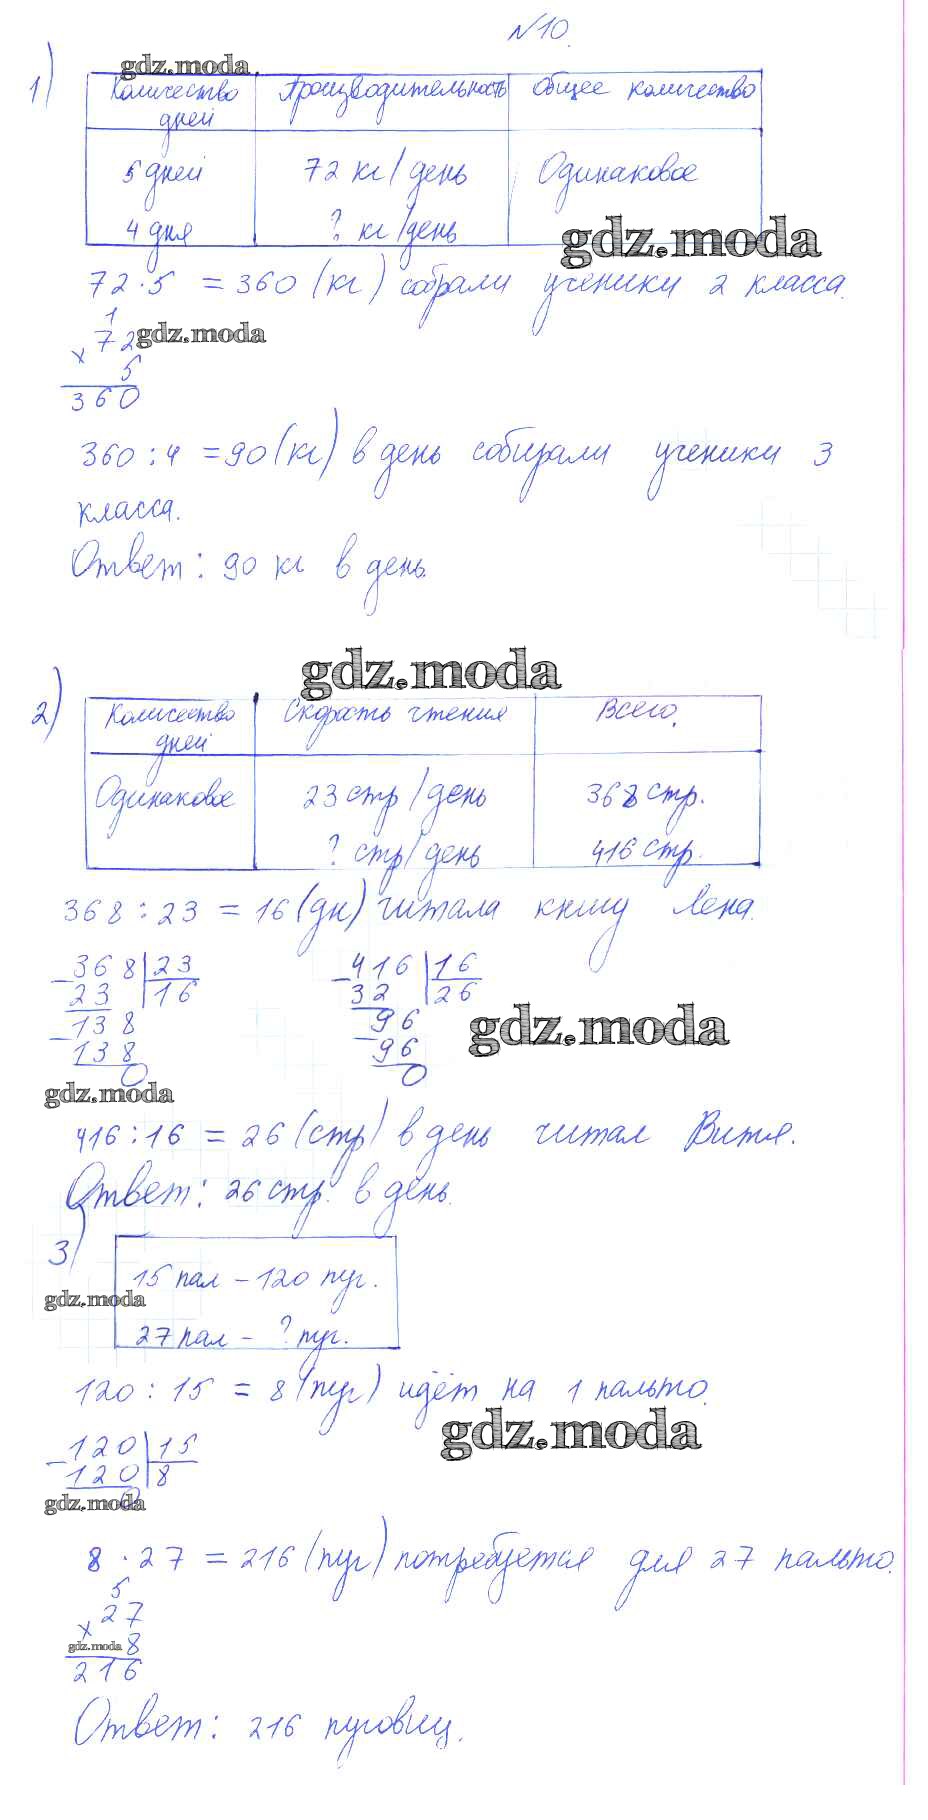 №10.
1)
gdz.moda
Количество дней Производительность Общее количество
5 дней 72 кг/день Одинаковое
4 дня ? кг/день
gdz.moda
72·5 = 360 (кг) собрали ученики 2 класса.
1
gdz.moda
72
× 5
360
360:4 = 90 (кг) в день собирали ученики 3
класса.
Ответ: 90 кг в день.
gdz.moda
2)
Количество дней Скорость чтения Всего.
Одинаковое 23 стр/день 368 стр.
? стр/день 416 стр.
368:23 = 16 (дн) читала книгу Лена.
-368 23 -416 16
23 16 32 26
-138 -96
138 96
0 0
gdz.moda
gdz.moda
416:16 = 26 (стр) в день читал Витя.
Ответ: 26 стр. в день.
3)
15 пал – 120 пуг.
gdz.moda
27 пал – ? пуг.
120 : 15 = 8 (пуг) идёт на 1 пальто.
gdz.moda
-120 15
120 8
0
gdz.moda
8 · 27 = 216 (пуг) потребуется для 27 пальто.
5
× 27
gdz.moda 8
216
Ответ: 216 пуговиц.